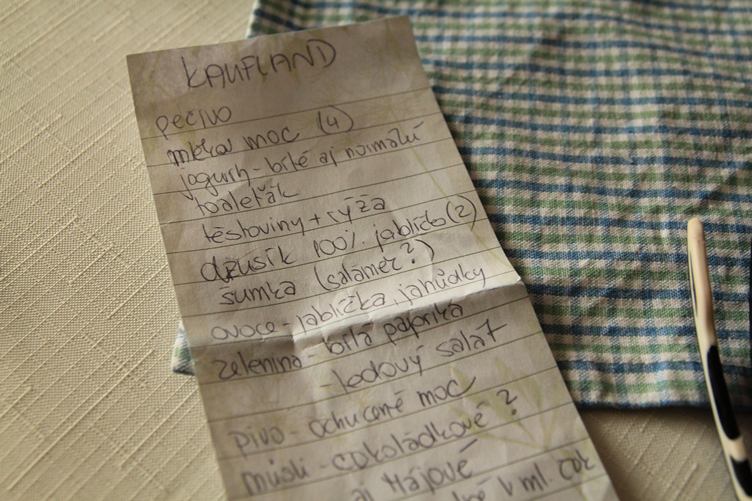 KAUFLAND
pečivo
mléka moc (4)
jogurty - bílé aj normální
toaleťák
těstoviny + rýža
džusík 100% jablíčko (2)
šunka (salámek?)
ovoce - jablíčka, jahůdky
zelenina - bílá paprika
- ledový salát
pivo - ochucené moc
müsli - čokoládkové?
aj hájové
v ml. čok